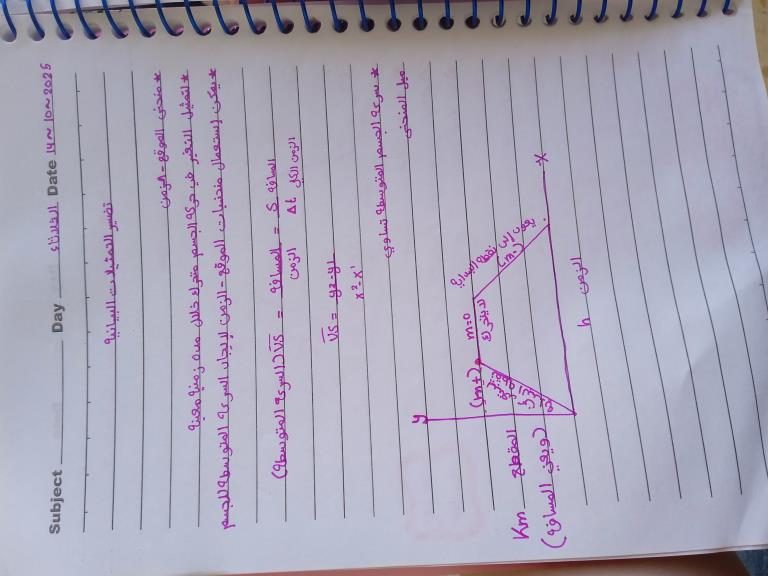 Subject Day الثلاثاء Date 14~10~2025
تفسير التمثيلات البيانية
* منحنى الموقع - الزمن
* لتمثيل التغير في حركة الجسم متحرك خلال مده زمنية معينة
* يمكن إستعمال منحنيات الموقع - الزمن لإيجاد السرعة المتوسطة للجسم
(السرعة المتوسطة) VS = المسافة / الزمن = S المسافة / Δt الزمن الكلي
VS = y2-y1 / x2-x1
* سرعة الجسم المتوسطة تساوي
ميل المنحنى
y
(m+)
m=0
نقطة البداية
(m-)
x
Km المقطع
(ويعني المسافة)
h الزمن